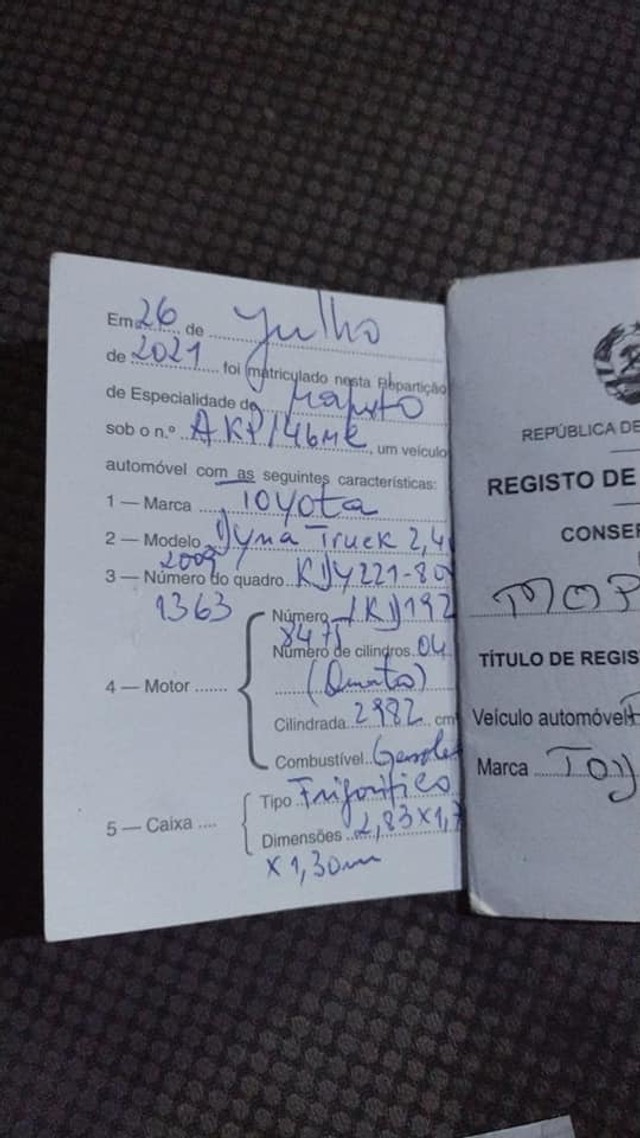 Em 26 de Julho
de 2021 foi matriculado nesta Repartição
de Especialidade de Maputo
sob o n.º AKP146MC, um veículo
automóvel com as seguintes características:
1 — Marca Toyota
2 — Modelo Dyna Truck 2,4
2009
3 — Número do quadro KDY221-80
1363
4 — Motor
Número 1KD192
8475
Número de cilindros 04
(Quatro)
Cilindrada 2982 cm
Combustível
5 — Caixa
Tipo Frigorifico
Dimensões 2,83x1,7
x 1,30m
REPÚBLICA DE
REGISTO DE
CONSER
MOP
TÍTULO DE REGIS
Veículo automóvel
Marca Toy